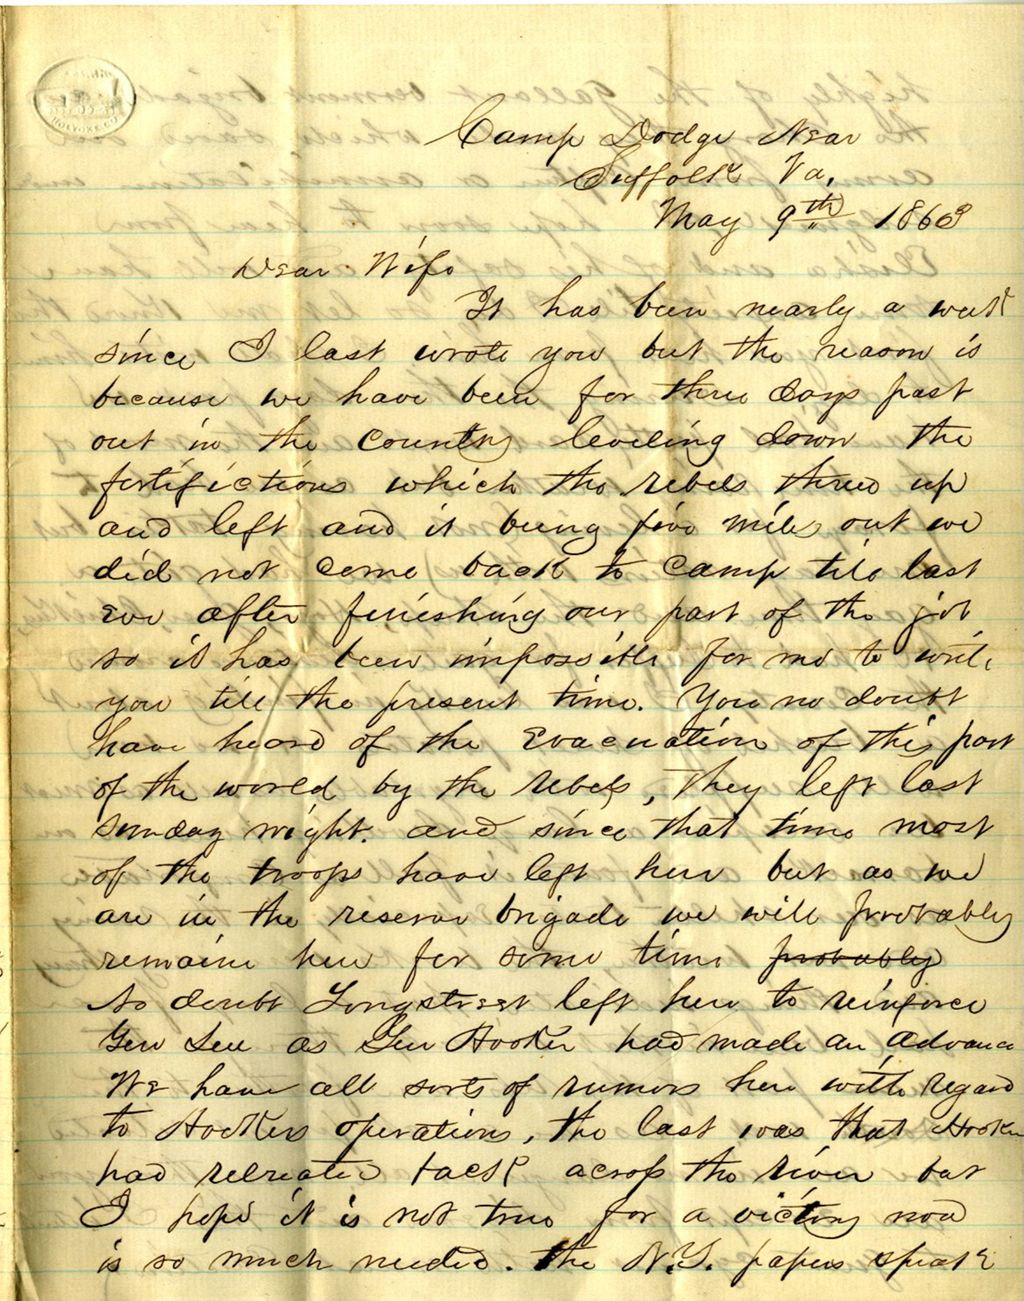 Camp Dodge Near
Suffolk Va,
May 9th 1863
Dear Wife
It has been nearly a week
since I last wrote you but the reason is
because we have been for three days past
out in the country leveling down the
fortifictions which the rebels threw up
and left and it being five miles out we
did not come back to camp till last
eve after finishing our part of the job
so it has been impossible for me to write
you till the present time. You no doubt
have heard of the Evacuation of this part
of the world by the rebels, They left last
Sunday night. and since that time most
of the troops have left here but as we
are in the reserve brigade we will probably
remaine here for some time probably
No doubt Longstreet left here to reinforce
Gen Lee as Gen Hooker had made an advance
We have all sorts of rumors here with regard
to Hookers operations, the last was that Hooker
had retreated back across the river but
I hope it is not true for a victory now
is so much needed. the N.Y. papers speak